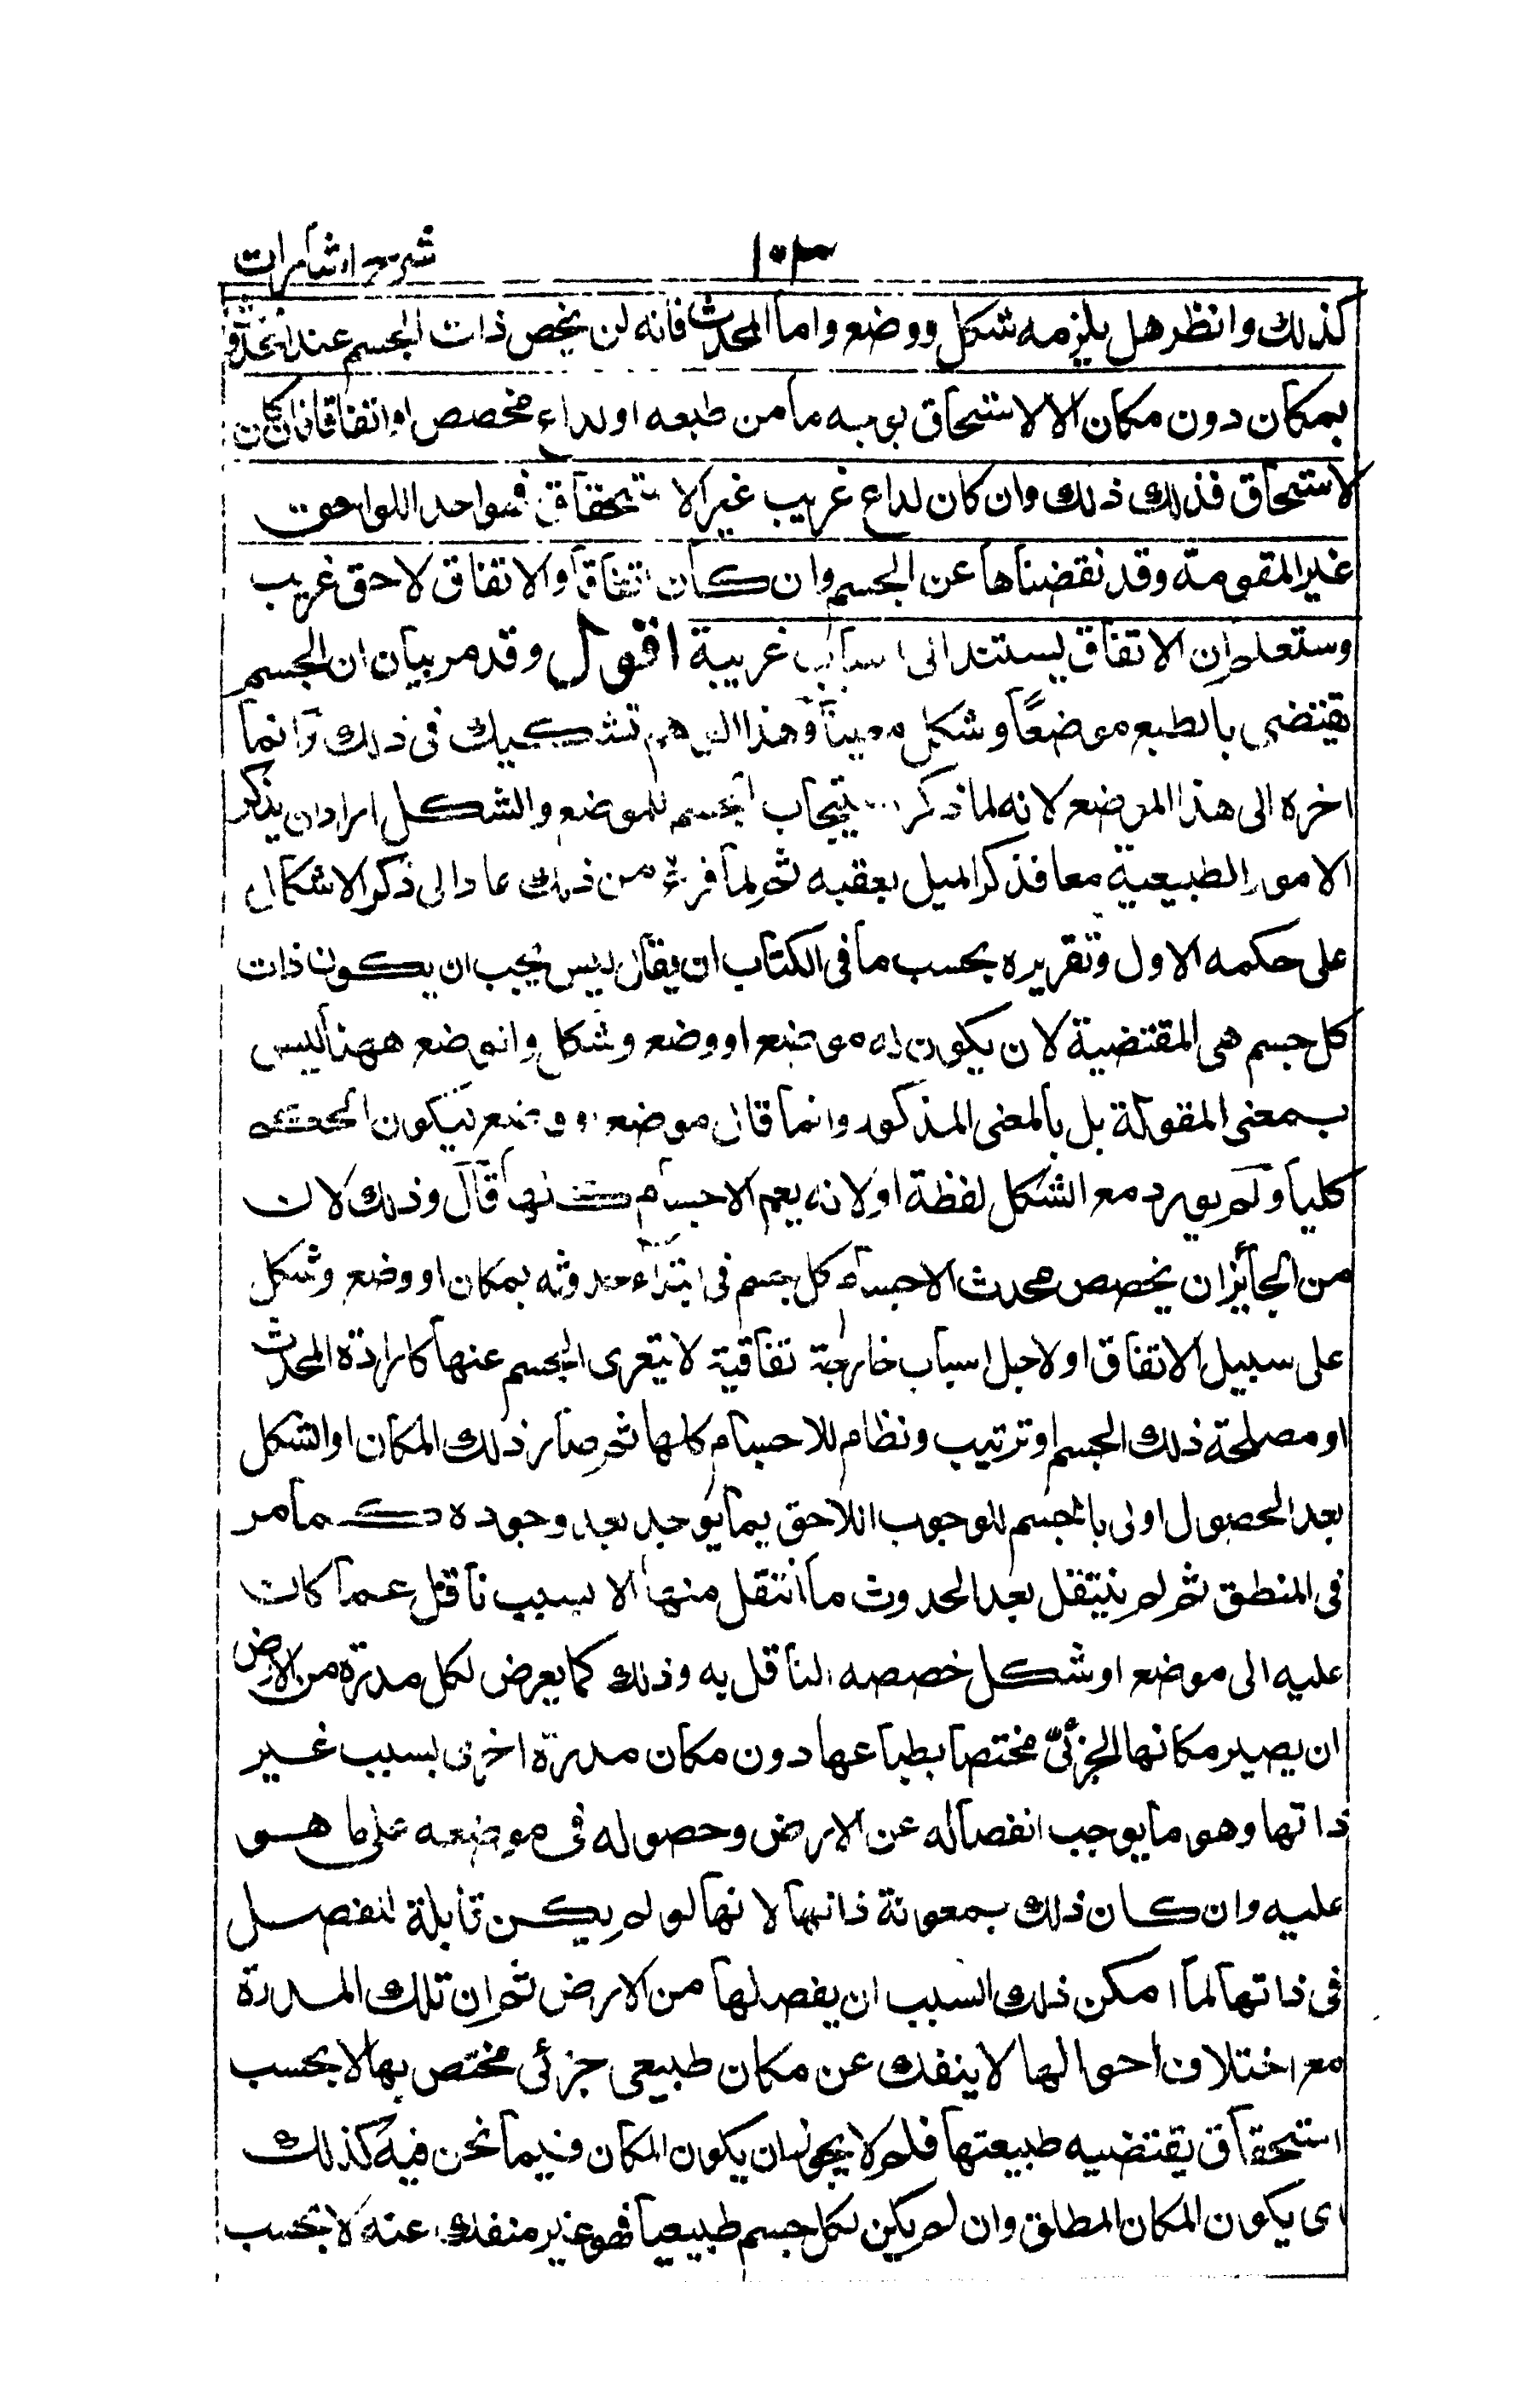 شرح اشارات ١٠٣
كذلك وانظر هل يلزمه شكل ووضع واما المحدث فانه لن يخص ذات الجسم عند
بمكان دون مكان الا لاستحقاق بوجه ما من طبعه او لداع مخصص او اتفاقا فان كان
لاستحقاق فذلك ذلك وان كان لداع غريب غير الاستحقاق فهو احد اللواحق
غير المقومة وقد نقضناها عن الجسم وان كان اتفاقا والاتفاق لاحق غريب
وستعلم ان الاتفاق يستند الى اسباب غريبة اقول وقد مر بيان ان الجسم
يقتضى بالطبع موضعًا وشكلا معينا وهذا الوهم تشكيك فى ذلك وانما
اخره الى هذا الموضع لانه لما ذكر الجسم للموضع والشكل اراد ان يذكر
الامور الطبيعية معا فذكر الميل بعقبه ثم لما فرغ من ذلك عاد الى ذكر الاشكال
على حكمه الاول وتقريره بحسب ما فى الكتاب ان يقال ليس يجب ان يكون ذات
كل جسم هى المقتضية لان يكون له موضع او وضع وشكل والوضع ههنا ليس
بمعنى المقولة بل بالمعنى المذكور وانما قال موضع او وضع ليكون الحكم
كليا ولم يورد مع الشكل لفظة او لانه يعم الاجسام كلها قال وذلك لان
من الجائز ان يخصص محدث الاجسام كل جسم فى ابتداء حدوثه بمكان او وضع وشكل
على سبيل الاتفاق او لاجل اسباب خارجة اتفاقية لا يتعرى الجسم عنها كارادة المحدث
او مصلحة ذلك الجسم او ترتيب ونظام للاجسام كلها ثم صار ذلك المكان او الشكل
بعد الحصول اولى بالجسم للوجوب اللاحق بما يوجد بعد وجوده كما مر
فى المنطق ثم لم ينتقل بعد الحدوث ما انتقل منها الا بسبب ناقل عما كان
عليه الى موضع او شكل خصصه الناقل به وذلك كما يعرض لكل مدرة من الارض
ان يصير مكانها الجزئىّ مختصا بطباعها دون مكان مدرة اخرى بسبب غير
ذاتها وهو ما يوجب انفصاله عن الارض وحصوله فى موضعه على ما هو
عليه وان كان ذلك بمعونة ذاتها لانها لو لم يكن قابلة لفصل
فى ذاتها لما امكن ذلك السبب ان يفصلها من الارض ثم ان تلك المدرة
مع اختلاف احوالها لا ينفك عن مكان طبيعى جزئى مختص بها لا بحسب
استحقاق يقتضيه طبيعتها فلم لا يجوز ان يكون المكان فيما نحن فيه كذلك
اى يكون المكان المطلق وان لم يكن لكل جسم طبيعيا فهو غير منفك عنه لا بحسب